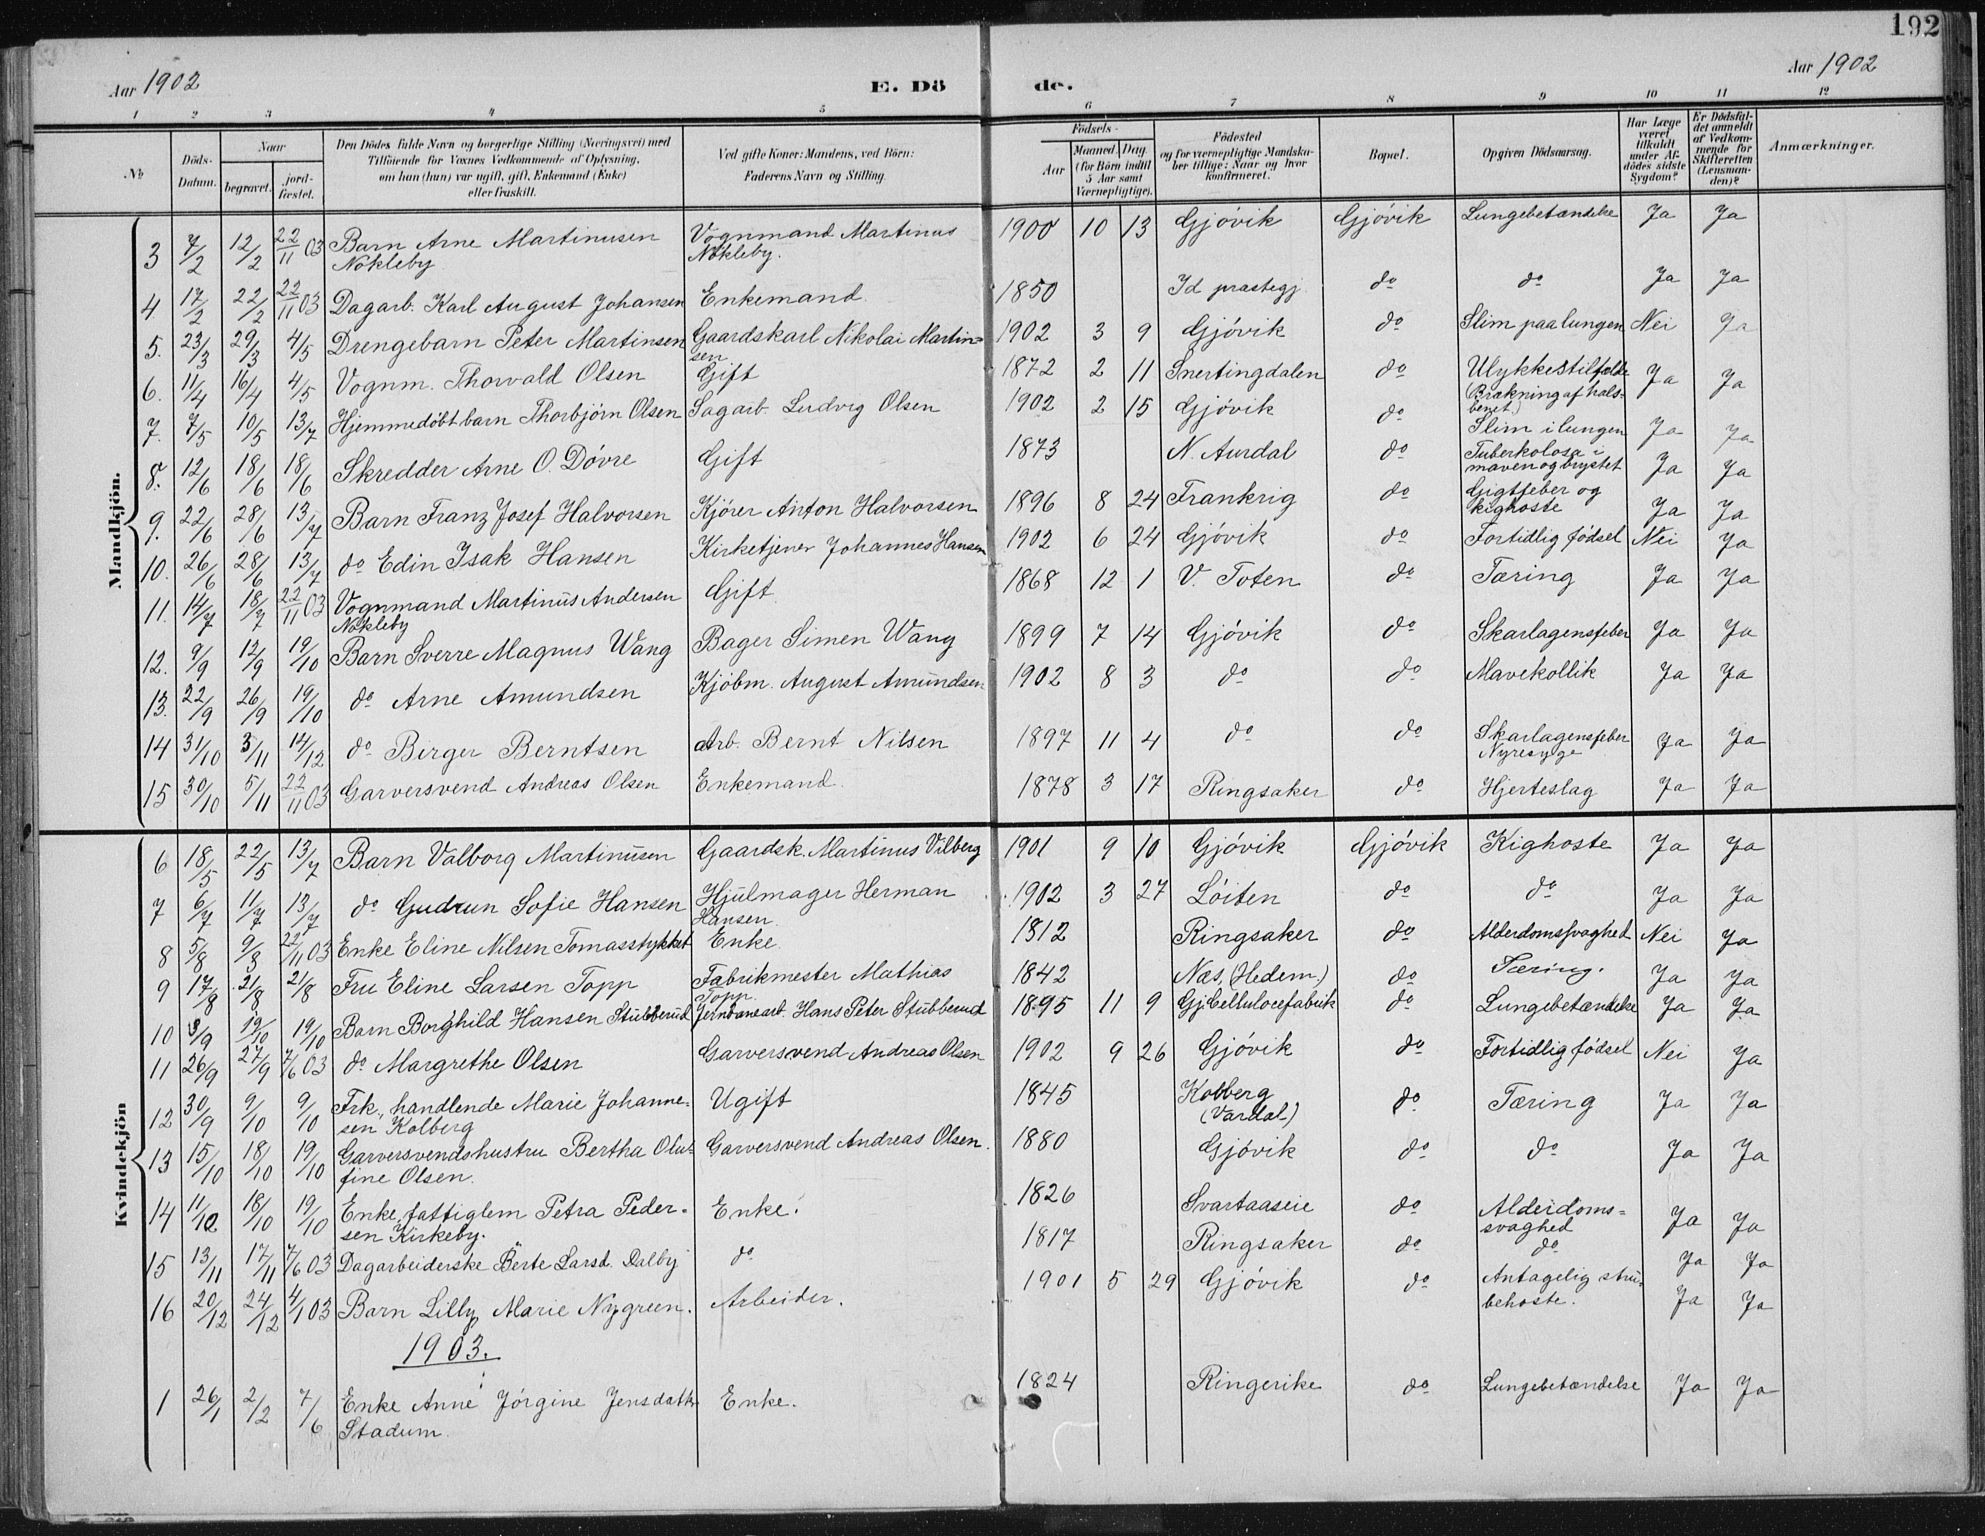 192
Aar 1902 E. Dö de. Aar 1902
1 2 3 4 5 6 7 8 9 10 11 12
No
Döds-Datum.
Naar
begravet.
jord-fæstet.
Den Dödes fulde Navn og borgerlige Stilling (Næringsvei) med
Tilföiende for Voxnes Vedkommende af Oplysning,
om han (hun) var ugift, gift, Enkemand (Enke)
eller fraskilt.
Ved gifte Koner: Mandens, ved Börn:
Faderens Navn og Stilling.
Födsels-
Aar
Maaned. Dag
(for Börn indtil
5 Aar samt
Værnepligtige).
Födested
og for værnepligtige Mandska-
ber tillige: Naar og hvor
konfirmeret.
Bopæl.
Opgiven Dödsaarsag.
Har Læge
været
tilkaldt
under Af-
dödes sidste
Sygdom?
Er Dödsfal-
det anmeldt
af Vedkom-
mende for
Skifteretten
(Lensman-
den)?
Anmærkninger.
Mandkjön.
3 7/2 12/2 22/11 03 Barn Arne Martinusen Vognmand Martinus 1900 10 13 Gjövik Gjövik Lungebetændelse Ja Ja
Nökleby Nökleby.
4 17/2 22/2 22/11 03 Dagarb. Karl August Johansen Enkemand 1850 Id præstegj. do do Ja Ja
5. 23/3 29/3 4/5 Drengebarn Peter Martinsen Gaardskarl Nikolai Martin= 1902 3 9 Gjövik do Slim paa lungen Nei Ja
sen
6. 11/4 16/4 4/5 Vognm. Thorvald Olsen Gift 1872 2 11 Snertingdalen do Ulykkestilfælde Ja Ja
(Brækning af hals-
benet.)
7. 7/5 10/5 13/7 Hjemmedöbt barn Thorbjörn Olsen Sagarb. Ludvig Olsen 1902 2 15 Gjövik do Slim i lungen Ja Ja
8. 12/6 18/6 18/6 Skredder Arne O. Dövre Gift 1873 N. Aurdal do Tuberkolosa i
maven og brystet Ja Ja
9. 22/6 28/6 13/7 Barn Franz Josef Halvorsen Kjörer Anton Halvorsen 1896 8 24 Frankrig do Gigtfeber og
kighoste Ja Ja
10. 26/6 28/6 13/7 do Edin Isak Hansen Kirketjener Johannes Hansen 1902 6 24 Gjövik do Fortidlig födsel Nei Ja
11. 14/7 18/7 22/11 03 Vognmand Martinus Andersen Gift 1868 12 1 V. Toten do Tæring Ja Ja
Nökleby
12. 9/9 12/9 19/10 Barn Sverre Magnus Wang Bager Simen Wang 1899 7 14 Gjövik do Skarlagensfeber Ja Ja
13. 22/9 26/9 19/10 do Arne Amundsen Kjöbm. August Amundsen 1902 8 3 do do Mavekollik Ja Ja
14 31/10 3/11 14/12 do Birger Berntsen Arb. Bernt Nilsen 1897 11 4 do do Skarlagensfeber
Nyresyge Ja Ja
15 30/10 5/11 22/11 03 Garversvend Andreas Olsen Enkemand. 1878 3 17 Ringsaker do Hjerteslag Ja Ja
Kvindekjön
6 18/5 22/5 13/7 Barn Valborg Martinusen Gaardsk. Martinus Vilberg 1901 9 10 Gjövik Gjövik Kighoste Ja Ja
7 6/7 11/7 13/7 do Gudrun Sofie Hansen Hjulmager Herman 1902 3 27 Löiten do do Ja Ja
Hansen
8 5/8 9/8 22/11 03 Enke Eline Nilsen Tomasstykket Enke. 1812 Ringsaker do Alderdomssvaghed Nei Ja
9 17/8 21/8 21/8 Fru Eline Larsen Topp Fabrikmester Mathias 1842 Næs, (Hedem.) do Tæring. Ja Ja
Topp
10 3/9 19/10 19/10 Barn Borghild Hansen Stubberud Jernbanearb. Hans Peter Stubberud 1895 11 9 Gj. Cellulocefabrik do Lungebetændelse Ja Ja
11 26/9 27/9 7/6 03 do Margrethe Olsen Garversvend Andreas Olsen 1902 9 26 Gjövik do Fortidlig födsel Nei Ja
12 30/9 9/10 9/10 Frk., handlende Marie Johanne= Ugift 1845 Kolberg do Tæring Ja Ja
sen Kolberg (Vardal)
13 15/10 18/10 19/10 Garversvendshustru Bertha Olu= Garversvend Andreas Olsen. 1880 Gjövik do do Ja Ja
fine Olsen.
14 11/10 18/10 19/10 Enke, fattiglem Petra Peder= Enke. 1826 Svartaaseie do Alderdoms=
sen Kirkeby. svaghed Ja Ja
15 13/11 17/11 7/6 03 Dagarbeiderske Berte Larsd. Dalby do 1817 Ringsaker do do Ja Ja
16 20/12 24/12 4/1 03 Barn Lilly Marie Nygreen. Arbeider. 1901 5 29 Gjövik do Antagelig stru=
behoste. Ja Ja
1903.
1 26/1 2/2 7/6 Enke Anne Jörgine Jensdatter Enke. 1824 Ringerike do Lungebetændelse Ja Ja
Stadum.